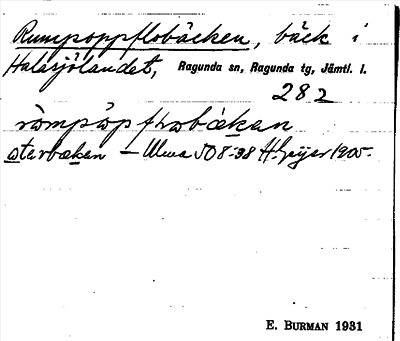 Rumpoppflobäcken, bäck i
Halasjölandet, Ragunda sn, Ragunda tg, Jämtl. l.
282
ròmpåpflobäkan
åtərbækan – Ulma 508:38 H. Geijer 1905.
E. BURMAN 1931